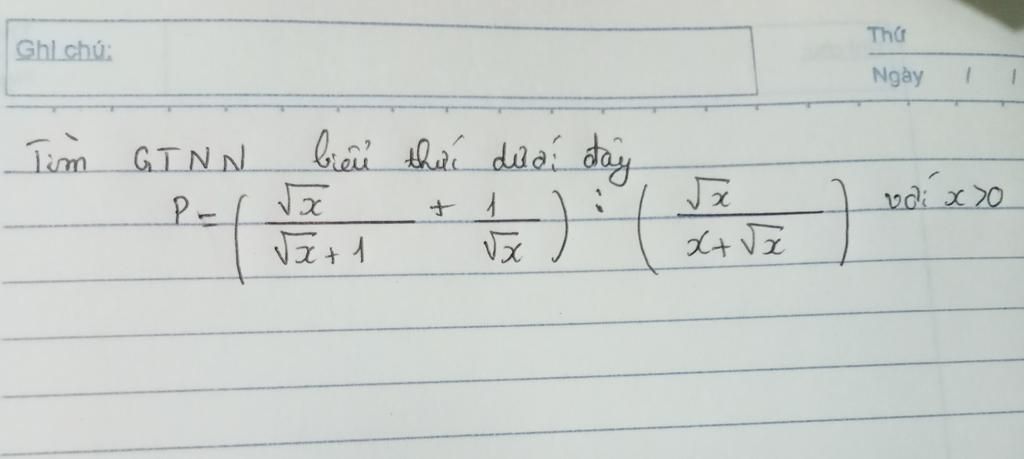 Ghi chú:
Thứ
Ngày / /
Tìm GTNN biểu thức dưới đây
P = ( √x / (√x + 1) + 1 / √x ) : ( √x / (x + √x) ) với x > 0